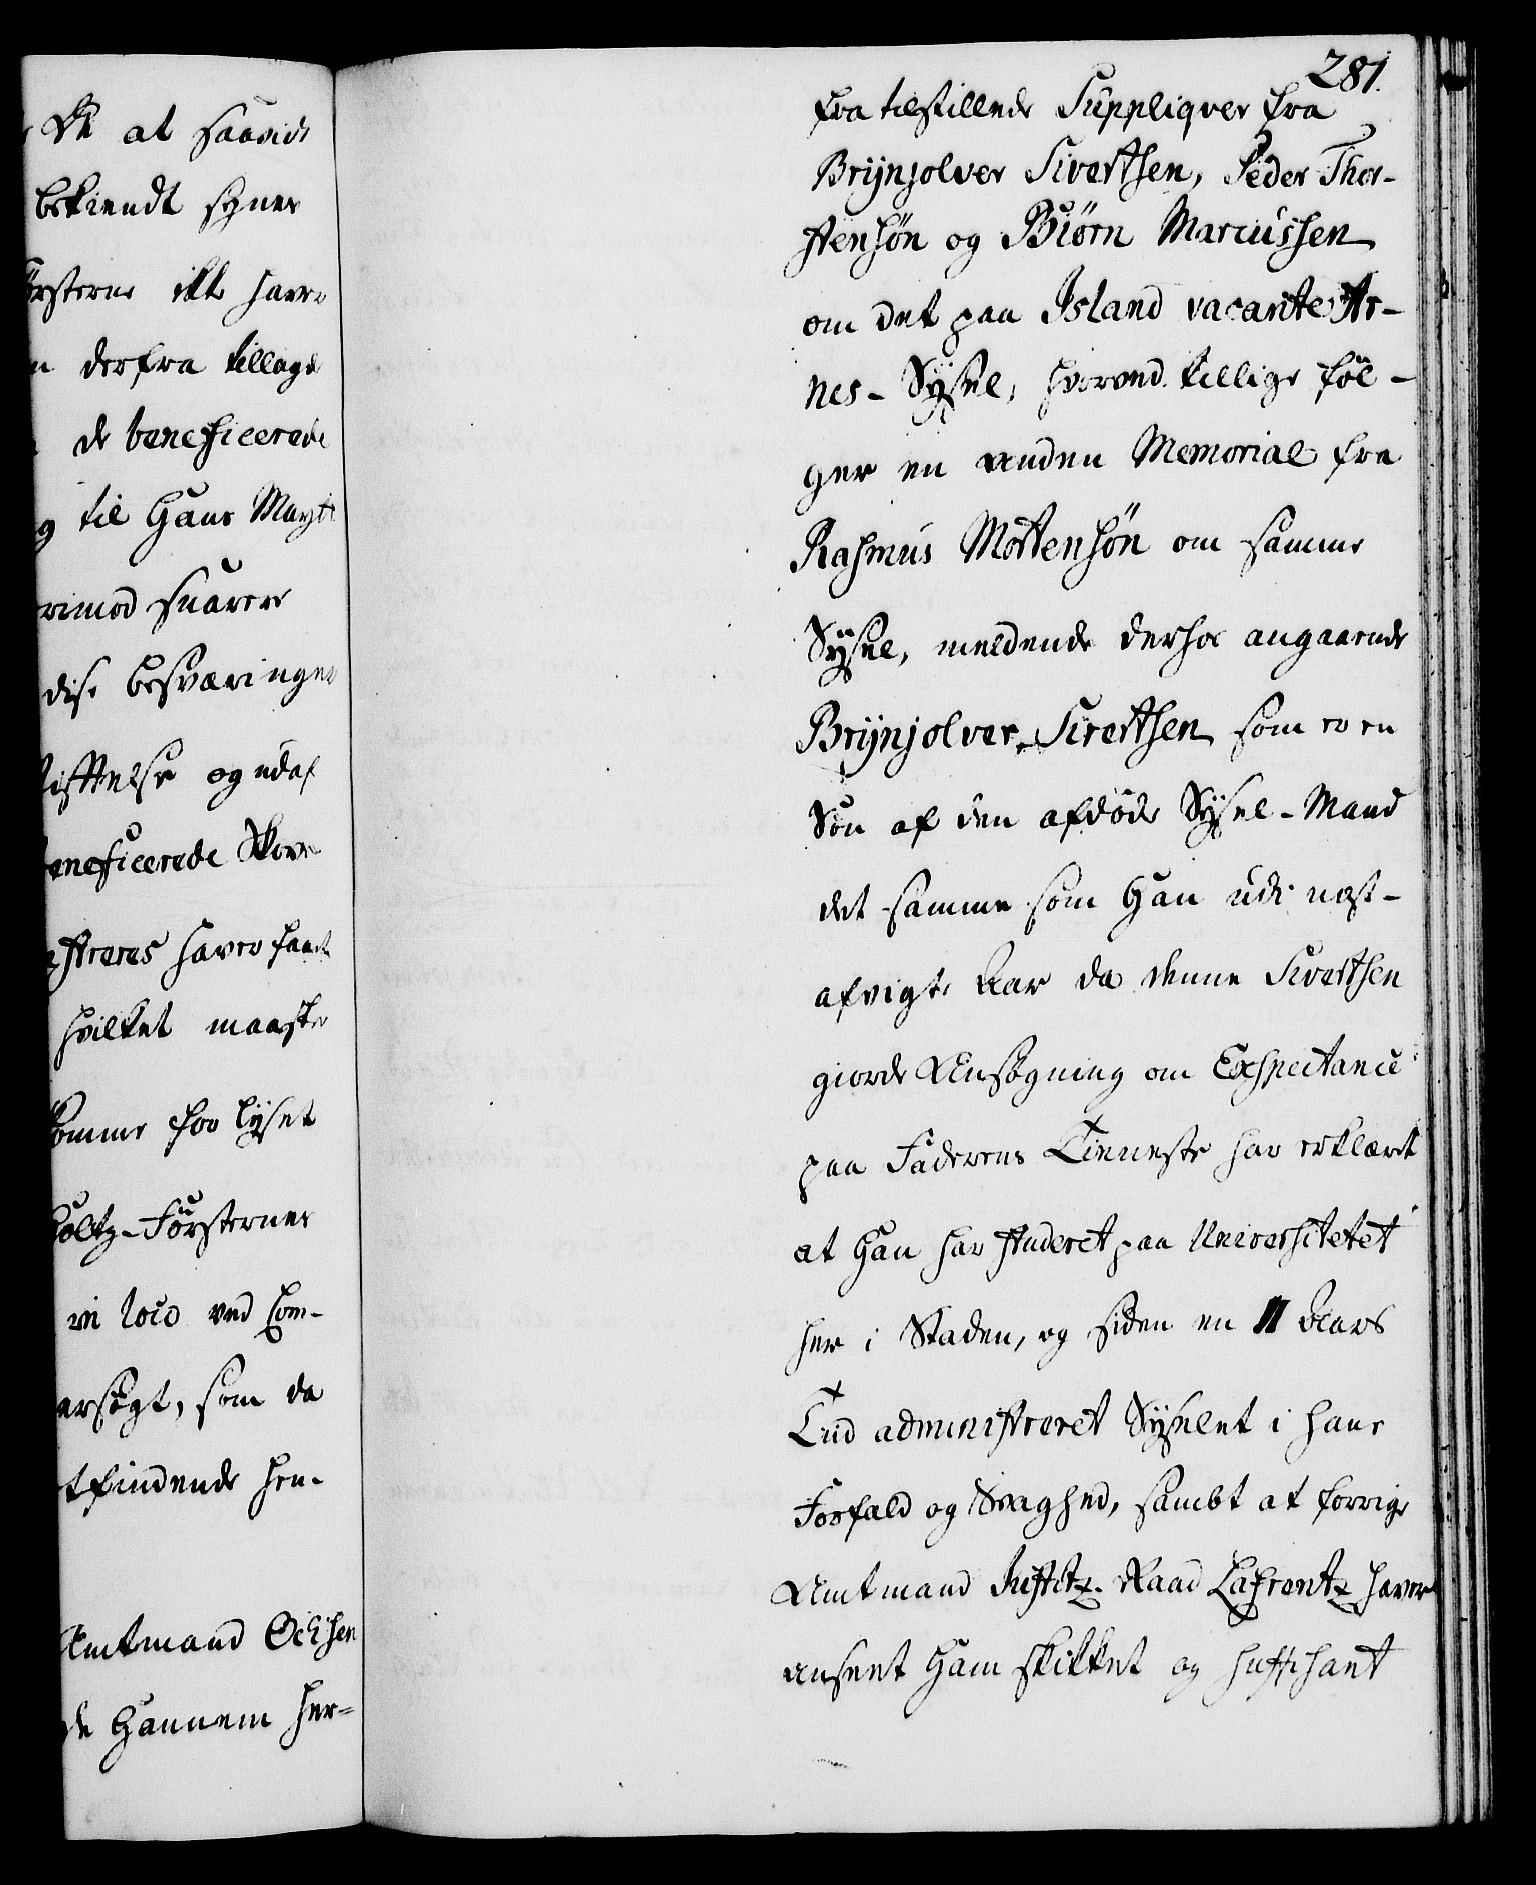 Dk at saavidt
bekiendt synes
ørsterne ikke haver
n derfra tillagde
de beneficerede
g til Hans Mayts
rimod svarere
dise besværinger
iftelse og udaf
eneficerede Skove
streres haver faaet
hvilket maaske
komme for lyset
holtz-Førsternes
in loco ved Com-
ersøgt, som da
tfindende hen-
Amtmand Ochsen
de Hannem her-
281.
fra tilstillede Suppliqver fra
Brÿnjolver Sivertsen, Peder Thor-
stensøn og Biørn Marcussen
om det paa Island vacante Ar-
nes-Sÿsel, hvorved tillige føl-
ger en anden Memorial fra
Rasmus Mortensøn om samme
Sÿsel, meldende derhos angaaende
Brÿnjolver Sivertsen som er en
Søn af den afdøde Sÿsel-Mand
det samme som Han udi næst-
afvigte Aar da denne Sivertsen
giorde Ansøgning om Exspectance
paa Faderens Tieneste har erklæret
at Han har studeret paa Universitetet
her i Staden, og siden en 11 Aars
Tiid administreret Sÿselet i hans
Forfald og Svaghed, sambt at forrige
Amtmand Justitz-Raad Lafrentz haver
anseet Ham skikket og suffisant